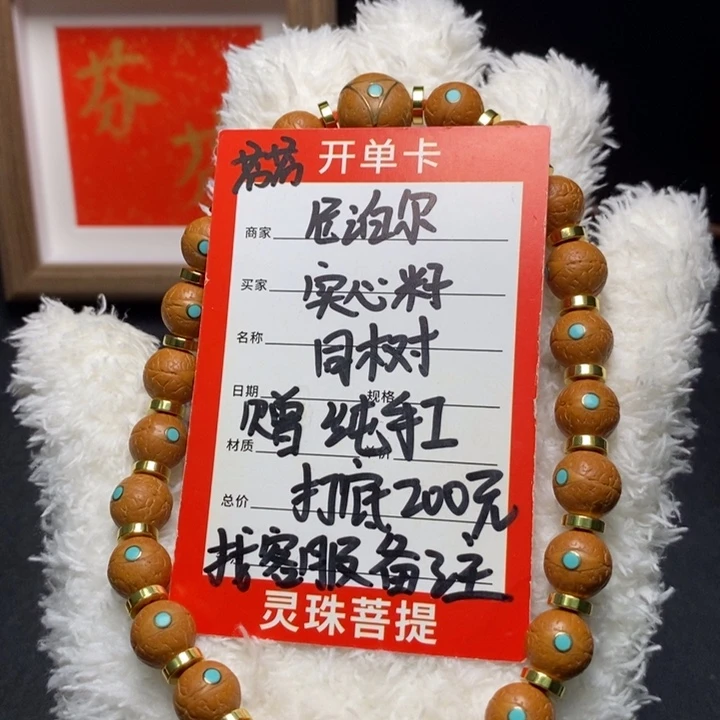 芬
芬芬 开单卡
商家 尼泊尔
买家 实心籽
名称 同树
日期 规格
赠纯手工
材质
总价 打底200元
找客服备注
灵珠菩提